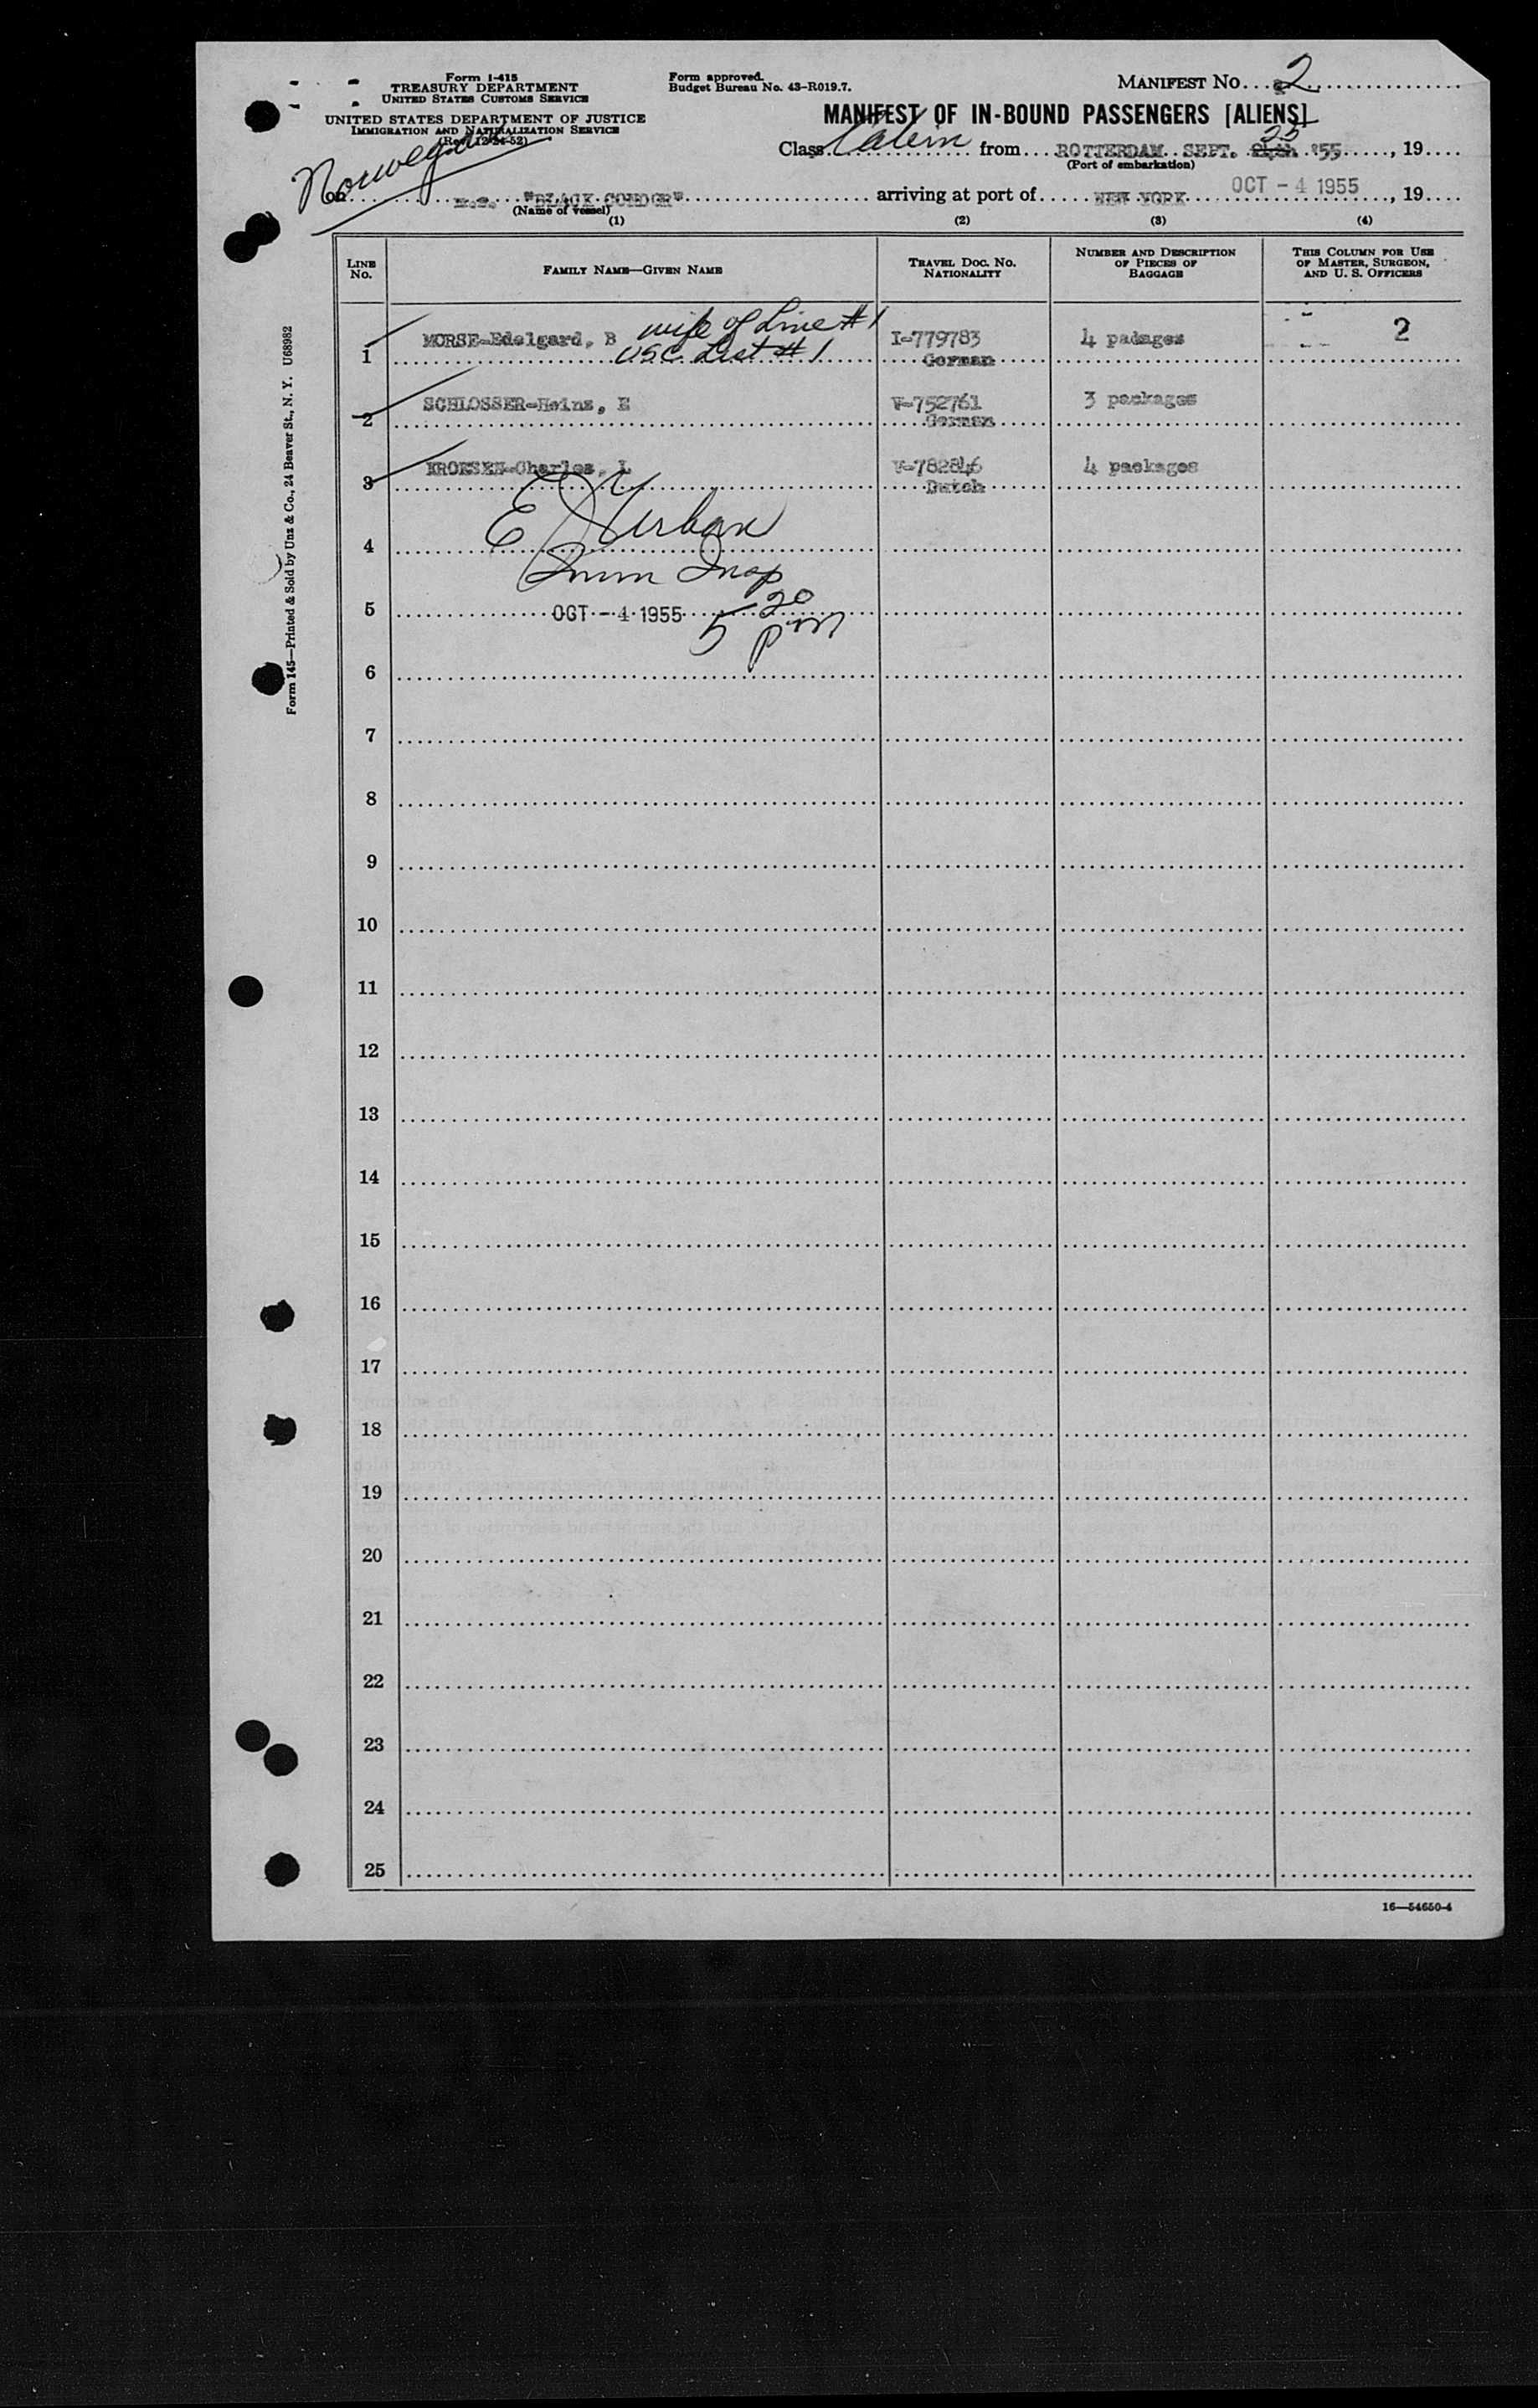 Form I-415
TREASURY DEPARTMENT
UNITED STATES CUSTOMS SERVICE
UNITED STATES DEPARTMENT OF JUSTICE
IMMIGRATION AND NATURALIZATION SERVICE
(Rev. 12-24-52)
Form approved.
Budget Bureau No. 43-R019.7.
MANIFEST NO. 2
MANIFEST OF IN-BOUND PASSENGERS [ALIENS]
Class Cabin from ROTTERDAM SEPT. 25 '55, 19
(Port of embarkation)
Norwegian
on m.s. "BLACK CONDOR" arriving at port of NEW YORK OCT - 4 1955, 19
(Name of vessel)
(1) (2) (3) (4)
LINE NO. FAMILY NAME—GIVEN NAME TRAVEL DOC. NO. NATIONALITY NUMBER AND DESCRIPTION OF PIECES OF BAGGAGE THIS COLUMN FOR USE OF MASTER, SURGEON, AND U. S. OFFICERS
1 MORSE-Edelgard, B wife of Line #1 I-779783 4 padages 2
USC List #1 German
2 SCHLOSSER-Heinz, E V-752761 3 packages
German
3 KROESEN-Charles, L V-782846 4 packages
Dutch
4 E J Urban
Imm Insp
5 OCT - 4 1955 5 20 pm
6
7
8
9
10
11
12
13
14
15
16
17
18
19
20
21
22
23
24
25
16—54650-4
Form 145—Printed & Sold by Unz & Co., 24 Beaver St., N. Y. U68982